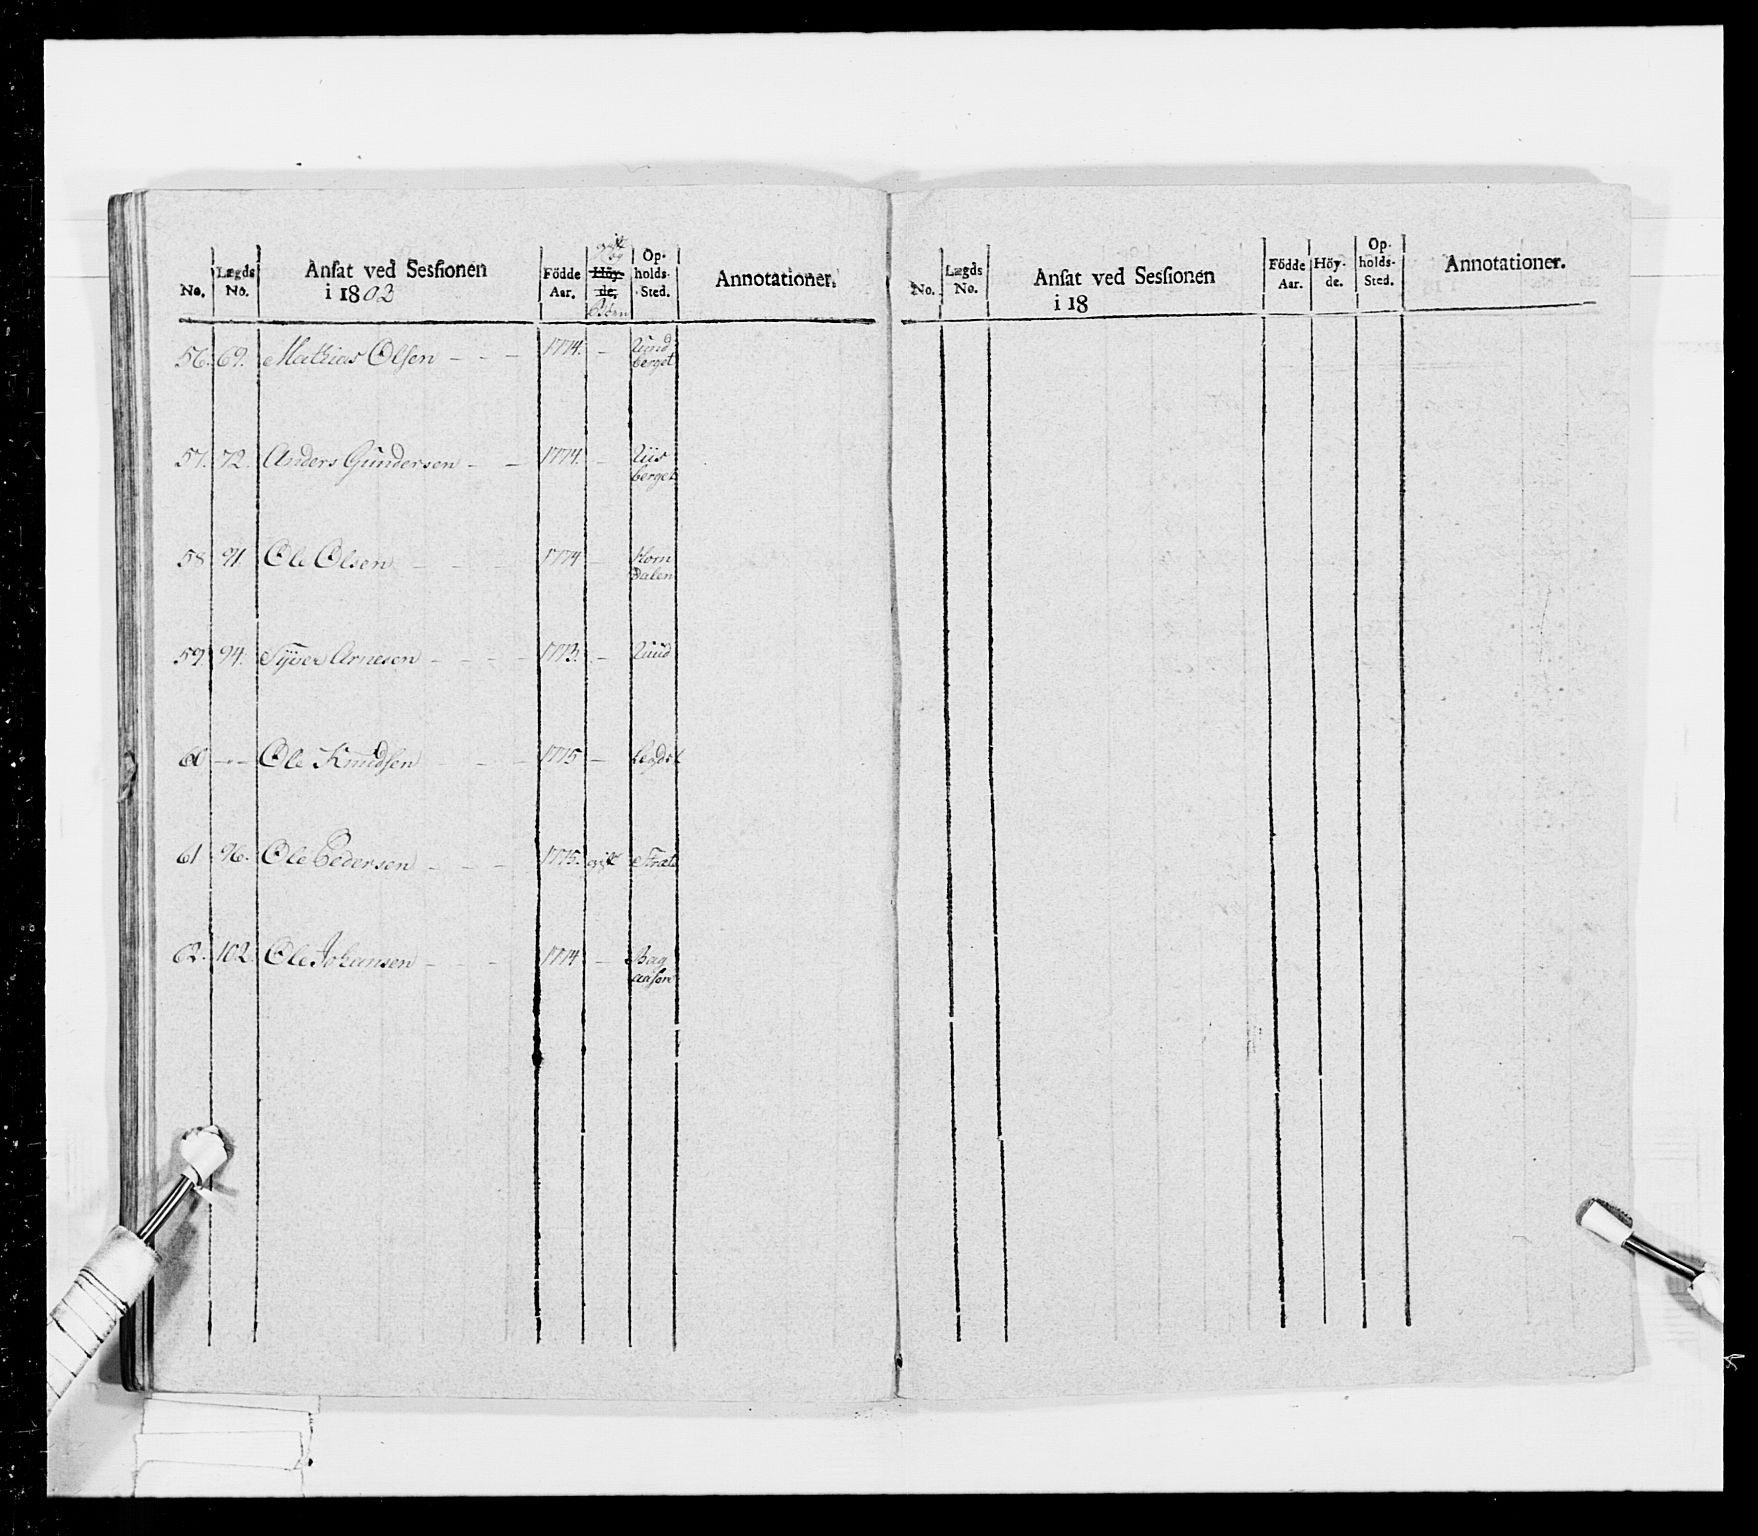 No. Lægds No. Ansat ved Sessionen i 1803 Födde Aar. gift og Höy-de. Börn Op-holds-Sted. Annotationer.
56. 69. Mathias Olsen - - - 1774. - Lund berget
57. 72. Anders Gundersen - - 1774. - Riis berget
58 91. Ole Olsen - - - 1774 - Korn dalen
59 94. Syver Arnesen - - - - 1773. - Ruud
60 - " - Ole Knudsen - - - 1775 -
61 96. Ole Pedersen - - - 1775. gift Stræte
62. 102. Ole Johansen - - - 1774 - Bag aasen
No. Lægds No. Ansat ved Sessionen i 18 Födde Aar. Höy-de. Op-holds-Sted. Annotationer.